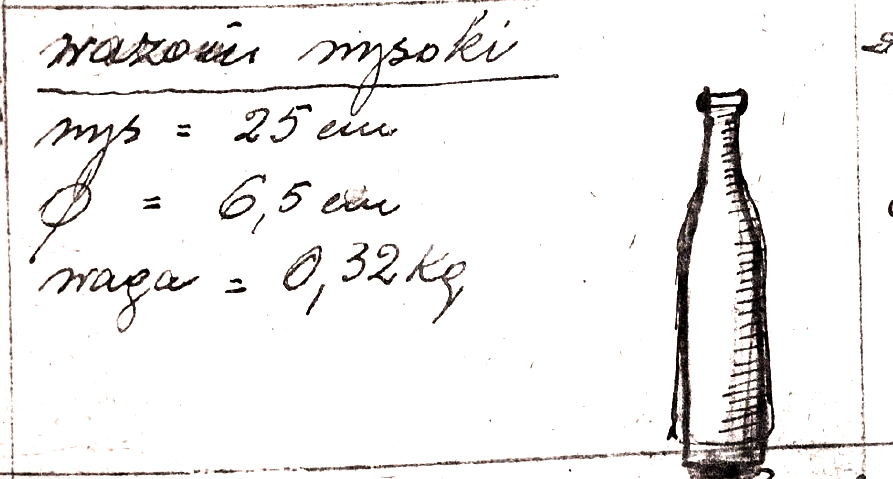 wazon wysoki
wys = 25 cm
φ = 6,5 cm
waga = 0,32 kg